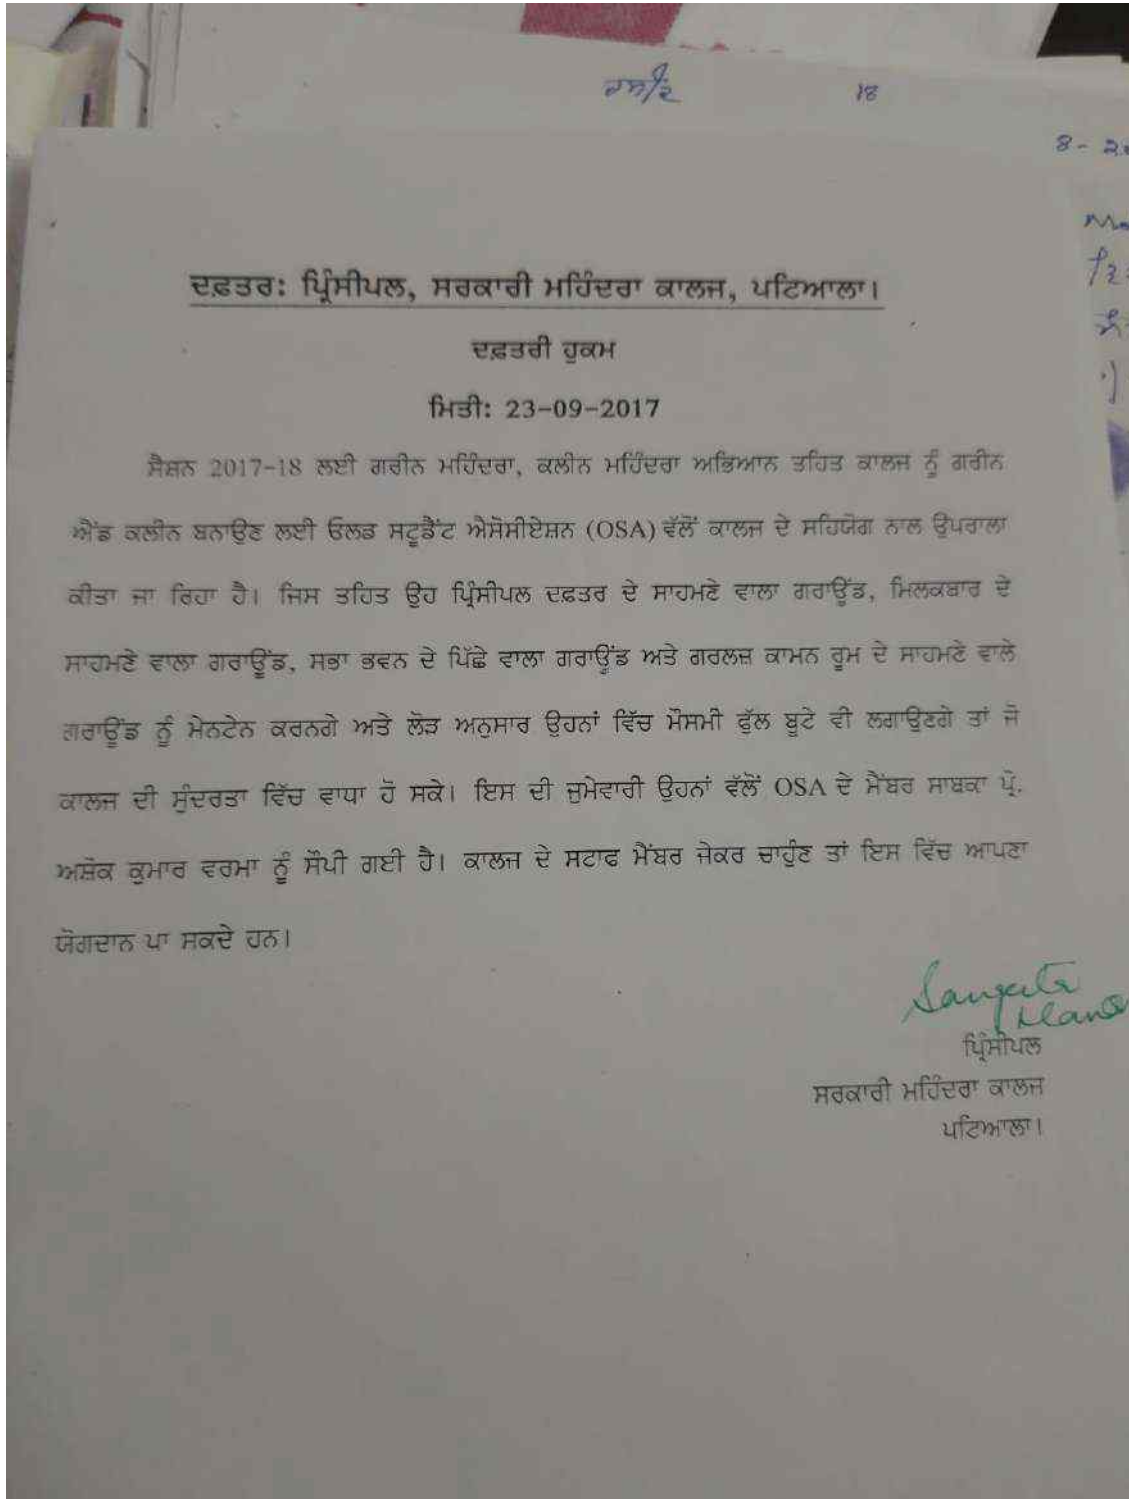 18
ਦਫ਼ਤਰ: ਪ੍ਰਿੰਸੀਪਲ, ਸਰਕਾਰੀ ਮਹਿੰਦਰਾ ਕਾਲਜ, ਪਟਿਆਲਾ।
ਦਫ਼ਤਰੀ ਹੁਕਮ
ਮਿਤੀ: 23-09-2017
ਸੈਸ਼ਨ 2017-18 ਲਈ ਗਰੀਨ ਮਹਿੰਦਰਾ, ਕਲੀਨ ਮਹਿੰਦਰਾ ਅਭਿਆਨ ਤਹਿਤ ਕਾਲਜ ਨੂੰ ਗਰੀਨ
ਐਂਡ ਕਲੀਨ ਬਨਾਉਣ ਲਈ ਓਲਡ ਸਟੂਡੈਂਟ ਐਸੋਸੀਏਸ਼ਨ (OSA) ਵੱਲੋਂ ਕਾਲਜ ਦੇ ਸਹਿਯੋਗ ਨਾਲ ਉਪਰਾਲਾ
ਕੀਤਾ ਜਾ ਰਿਹਾ ਹੈ। ਜਿਸ ਤਹਿਤ ਉਹ ਪ੍ਰਿੰਸੀਪਲ ਦਫ਼ਤਰ ਦੇ ਸਾਹਮਣੇ ਵਾਲਾ ਗਰਾਊਂਡ, ਮਿਲਕਬਾਰ ਦੇ
ਸਾਹਮਣੇ ਵਾਲਾ ਗਰਾਊਂਡ, ਸਭਾ ਭਵਨ ਦੇ ਪਿੱਛੇ ਵਾਲਾ ਗਰਾਊਂਡ ਅਤੇ ਗਰਲਜ਼ ਕਾਮਨ ਰੂਮ ਦੇ ਸਾਹਮਣੇ ਵਾਲੇ
ਗਰਾਊਂਡ ਨੂੰ ਮੇਨਟੇਨ ਕਰਨਗੇ ਅਤੇ ਲੋੜ ਅਨੁਸਾਰ ਉਹਨਾਂ ਵਿੱਚ ਮੌਸਮੀ ਫੁੱਲ ਬੂਟੇ ਵੀ ਲਗਾਉਣਗੇ ਤਾਂ ਜੋ
ਕਾਲਜ ਦੀ ਸੁੰਦਰਤਾ ਵਿੱਚ ਵਾਧਾ ਹੋ ਸਕੇ। ਇਸ ਦੀ ਜੁਮੇਵਾਰੀ ਉਹਨਾਂ ਵੱਲੋਂ OSA ਦੇ ਮੈਂਬਰ ਸਾਬਕਾ ਪ੍ਰੋ.
ਅਸ਼ੋਕ ਕੁਮਾਰ ਵਰਮਾ ਨੂੰ ਸੌਂਪੀ ਗਈ ਹੈ। ਕਾਲਜ ਦੇ ਸਟਾਫ ਮੈਂਬਰ ਜੇਕਰ ਚਾਹੁੰਣ ਤਾਂ ਇਸ ਵਿੱਚ ਆਪਣਾ
ਯੋਗਦਾਨ ਪਾ ਸਕਦੇ ਹਨ।
ਪ੍ਰਿੰਸੀਪਲ
ਸਰਕਾਰੀ ਮਹਿੰਦਰਾ ਕਾਲਜ
ਪਟਿਆਲਾ।